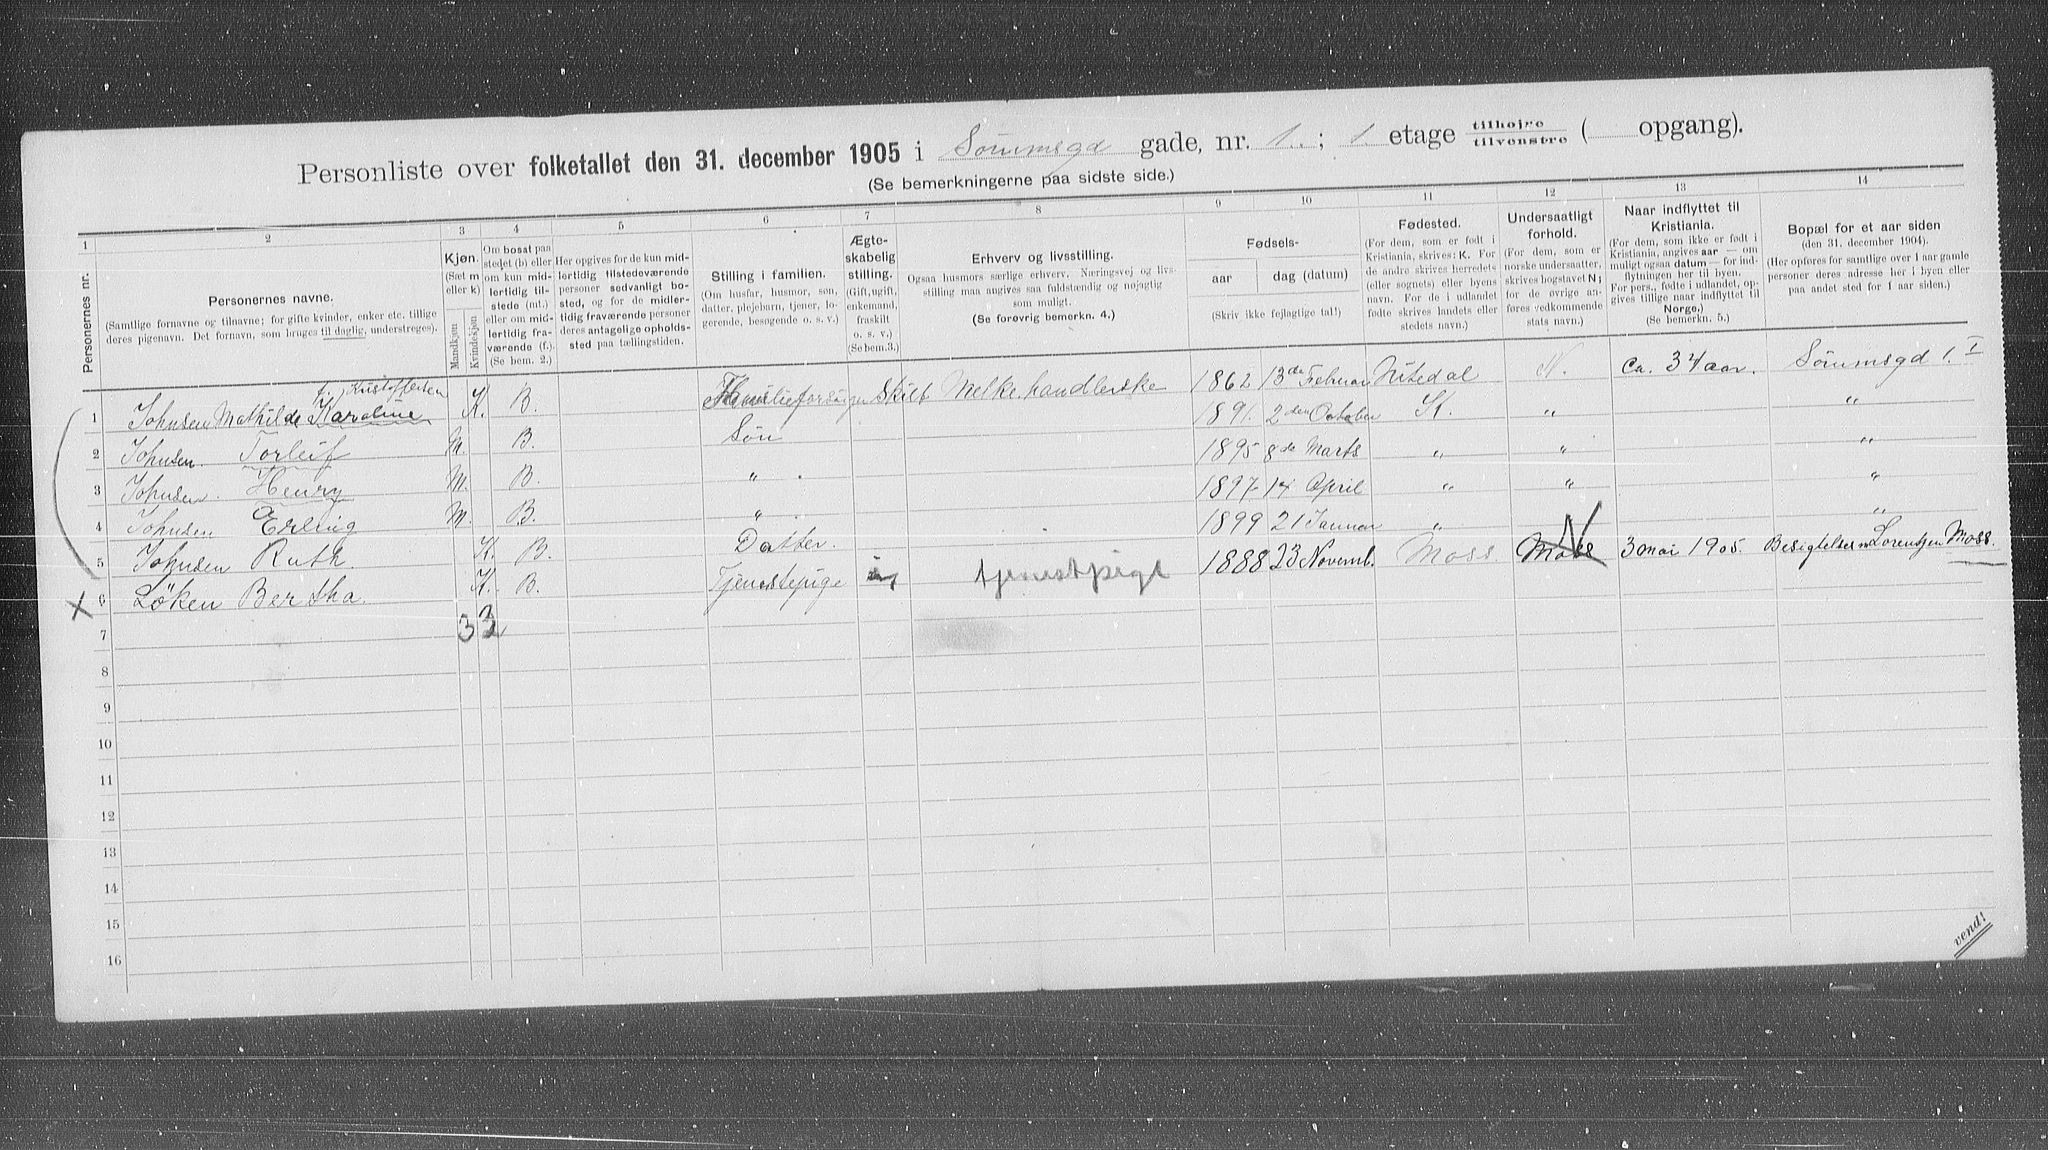 Personliste over folketallet den 31. december 1905 i Sörumsgd gade, nr. 1.; 1. etage tilhøire / tilvenstre ( opgang).
(Se bemerkningerne paa sidste side.)
1 2 3 4 5 6 7 8 9 10 11 12 13 14
Personernes nr.
Personernes navne.
(Samtlige fornavne og tilnavne; for gifte kvinder, enker etc. tillige
deres pigenavn. Det fornavn, som bruges til daglig, understreges).
Kjøn.
(Sæt m
eller k)
Mandkjøn
Kvindekjøn
Om bosat paa
stedet (b) eller
om kun mid-
lertidig til-
stede (mt.)
eller om mid-
lertidig fra-
værende (f.).
(Se bem. 2.)
Her opgives for de kun mid-
lertidig tilstedeværende
personer sedvanligt bo-
sted, og for de midler-
tidig fraværende personer
deres antagelige opholds-
sted paa tællingstiden.
Stilling i familien.
(Om husfar, husmor, søn,
datter, plejebarn, tjener, lo-
gerende, besøgende o. s. v.)
Ægte-
skabelig
stilling.
(Gift, ugift,
enkemand,
fraskilt
o. s. v.)
(Se bem.3.)
Erhverv og livsstilling.
Ogsaa husmors særlige erhverv. Næringsvej og livs-
stilling maa angives saa fuldstændig og nøjagtig
som muligt.
(Se forøvrig bemerkn. 4.)
Fødsels-
aar dag (datum)
(Skriv ikke fejlagtige tal!)
Fødested.
(For dem, som er født i
Kristiania, skrives: K. For
de andre skrives herredets
(eller sognets) eller byens
navn. For de i udlandet
fødte skrives landets eller
stedets navn.)
Undersaatligt
forhold.
(For dem, som er
norske undersaatter,
skrives bogstavet N;
for de øvrige an-
føres vedkommende
stats navn.)
Naar indflyttet til
Kristiania.
(For dem, som ikke er født i
Kristiania, angives aar — om
muligt ogsaa datum — for ind-
flytningen her til byen.
For pers., fødte i udlandet, op-
gives tillige naar indflyttet til
Norge.)
(Se bemerkn. 5.)
Bopæl for et aar siden
(den 31. december 1904).
(Her opføres for samtlige over 1 aar gamle
personer deres adresse her i byen eller
paa andet sted for 1 aar siden.)
f. Kristoffersen
1 Johnsen Mathilde Karoline K. B. Familieforsörger Skilt Melkehandlerske 1862 13de Februar Nitedal N. Ca. 34 aar. Sörumsgd 1. I
2 Johnsen. Torleif M. B. Sön 1891. 2den October K. „ „
3 Johnsen. Henry M. B. „ 1895 8de Marts „ „ „
4 Johnsen Erling M. B. „ 1897 14 April „ „ „
5 Johnsen Ruth. K. B. Datter. 1899 21 Januar „ „
X 6 Löken Bertha. K. B. Tjenestepige tjenestpige 1888 23 Novemb. Moss. Moss N 3 mai 1905. Besigtelsesm Lorentzen Moss.
7 3 3
8
9
10
11
12
13
14
15
16
vend!